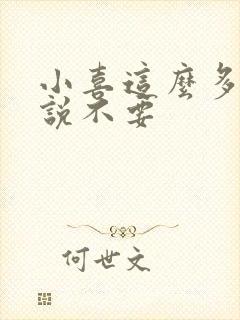 小喜這麼多
說不要
何世文